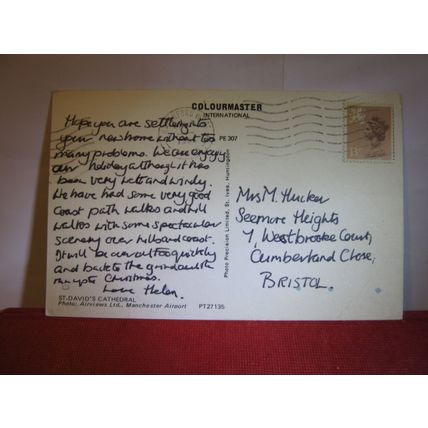 COLOURMASTER
INTERNATIONAL
PE 307
Hope you are settling into
your new home without too
many problems. We are enjoying
our holiday although it has
been very wet and windy.
We have had some very good
coast path walks and hill
walks with some spectacular
scenery over hills and coast.
It will be over all too quickly
and back to the grind with
run up to Christmas.
Love Helen.
ST. DAVID'S CATHEDRAL
Photo: Airviews Ltd., Manchester Airport PT27135
Photo Precision Limited, St. Ives, Huntingdon
Mrs M. Hucker
Seemore Heights
7, Westbrooke Court,
Cumberland Close,
BRISTOL.